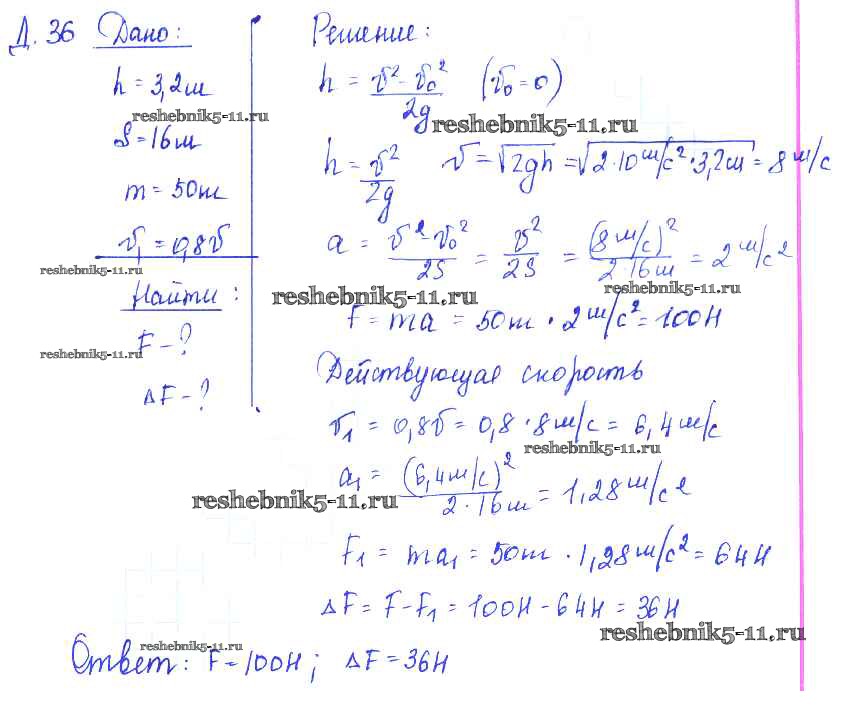 Д. 36 Дано:
h = 3,2 м
S = 16 м
m = 50 кг
v₁ = 0,8v
Найти:
F – ?
ΔF – ?
Решение:
h = (v² - v₀²)/2g (v₀ = 0)
h = v²/2g v = √2gh = √2·10 м/с²·3,2 м = 8 м/с
a = (v² - v₀²)/2S = v²/2S = (8 м/с)²/2·16 м = 2 м/с²
F = ma = 50 кг · 2 м/с² = 100 Н
Действующая скорость
v₁ = 0,8v = 0,8 · 8 м/с = 6,4 м/с
a₁ = (6,4 м/с)²/2·16 м = 1,28 м/с²
F₁ = ma₁ = 50 кг · 1,28 м/с² = 64 Н
ΔF = F - F₁ = 100 Н - 64 Н = 36 Н
Ответ: F = 100 Н; ΔF = 36 Н
reshebnik5-11.ru
reshebnik5-11.ru
reshebnik5-11.ru
reshebnik5-11.ru
reshebnik5-11.ru
reshebnik5-11.ru
reshebnik5-11.ru
reshebnik5-11.ru
reshebnik5-11.ru
reshebnik5-11.ru